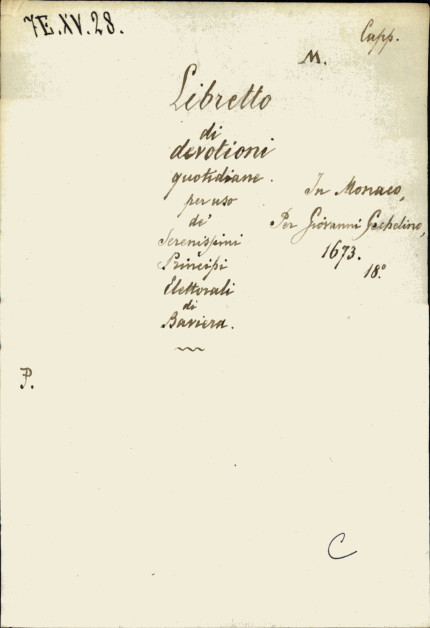 7E.XV.28.
Capp.
M.
Libretto
di
devotioni
quotidiane.
per uso
de'
Serenissimi
Principi
Elettorali
di
Baviera.
In Monaco,
Per Giovanni Gechelino,
1673.
18°
P.
C